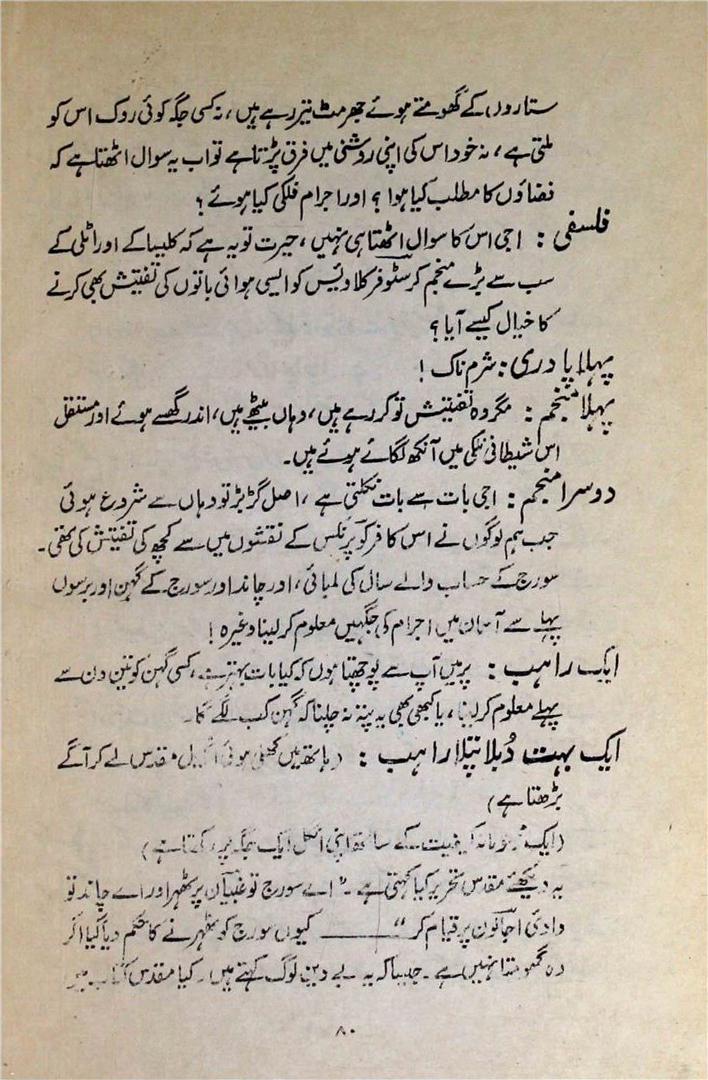 ستاروں کے گھومتے ہوئے جھرمٹ تیر رہے ہیں، نہ کسی جگہ کوئی روک اس کو
ملتی ہے، نہ خود اس کی اپنی روشنی میں فرق پڑتا ہے تو اب یہ سوال اٹھتا ہے کہ
فضاؤں کا مطلب کیا ہوا؟ اور اجرام فلکی کیا ہوئے؟
فلسفی: اجی اس کا سوال اٹھتا ہی نہیں، حیرت تو یہ ہے کہ کلیسا کے اور اٹلی کے
سب سے بڑے منجم کرسٹوفر کلاویس کو ایسی ہوائی باتوں کی تفتیش بھی کرنے
کا خیال کیسے آیا؟
پہلا پادری: شرم ناک!
پہلا منجم: مگر وہ تفتیش تو کر رہے ہیں، وہاں بیٹھے ہیں، اندر گھسے ہوئے اور مستقل
اس شیطانی نلکی میں آنکھ لگائے ہوئے ہیں۔
دوسرا منجم: اجی بات سے بات نکلتی ہے، اصل گڑبڑ تو وہاں سے شروع ہوئی
جب ہم لوگوں نے اس کافر کوپرنکس کے نقشوں میں سے کچھ کی تفتیش کی تھی۔
سورج کے حساب والے سال کی لمبائی، اور چاند اور سورج کے گہن اور برسوں
پہلے سے آسمان میں اجرام کی جگہیں معلوم کر لینا وغیرہ!
ایک راہب: پر میں آپ سے پوچھتا ہوں کہ کیا بات بہتر ہے، کسی گہن کو تین دن سے
پہلے معلوم کر لینا، یا کبھی بھی یہ پتہ نہ چلنا کہ گہن کب لگے گا۔
ایک بہت دُبلا پتلا راہب: (ہاتھ میں کھلی ہوئی مقدس لے کر آگے
بڑھتا ہے)
(ایک کیفیت کے ساتھ اپنی ایک جگہ پر رکھتا ہے)
یہ دیکھئے مقدس تحریر کیا کہتی ہے۔ "اے سورج تو غبیان پر ٹھہر اور اے چاند تو
وادئ اجالون پر قیام کر" ــــــ کیوں سورج کو ٹھہرنے کا حکم دیا گیا اگر
وہ گھومتا نہیں ہے۔ جیسا کہ یہ بے دین لوگ کہتے ہیں۔ کیا مقدس کتاب میں
۸۰